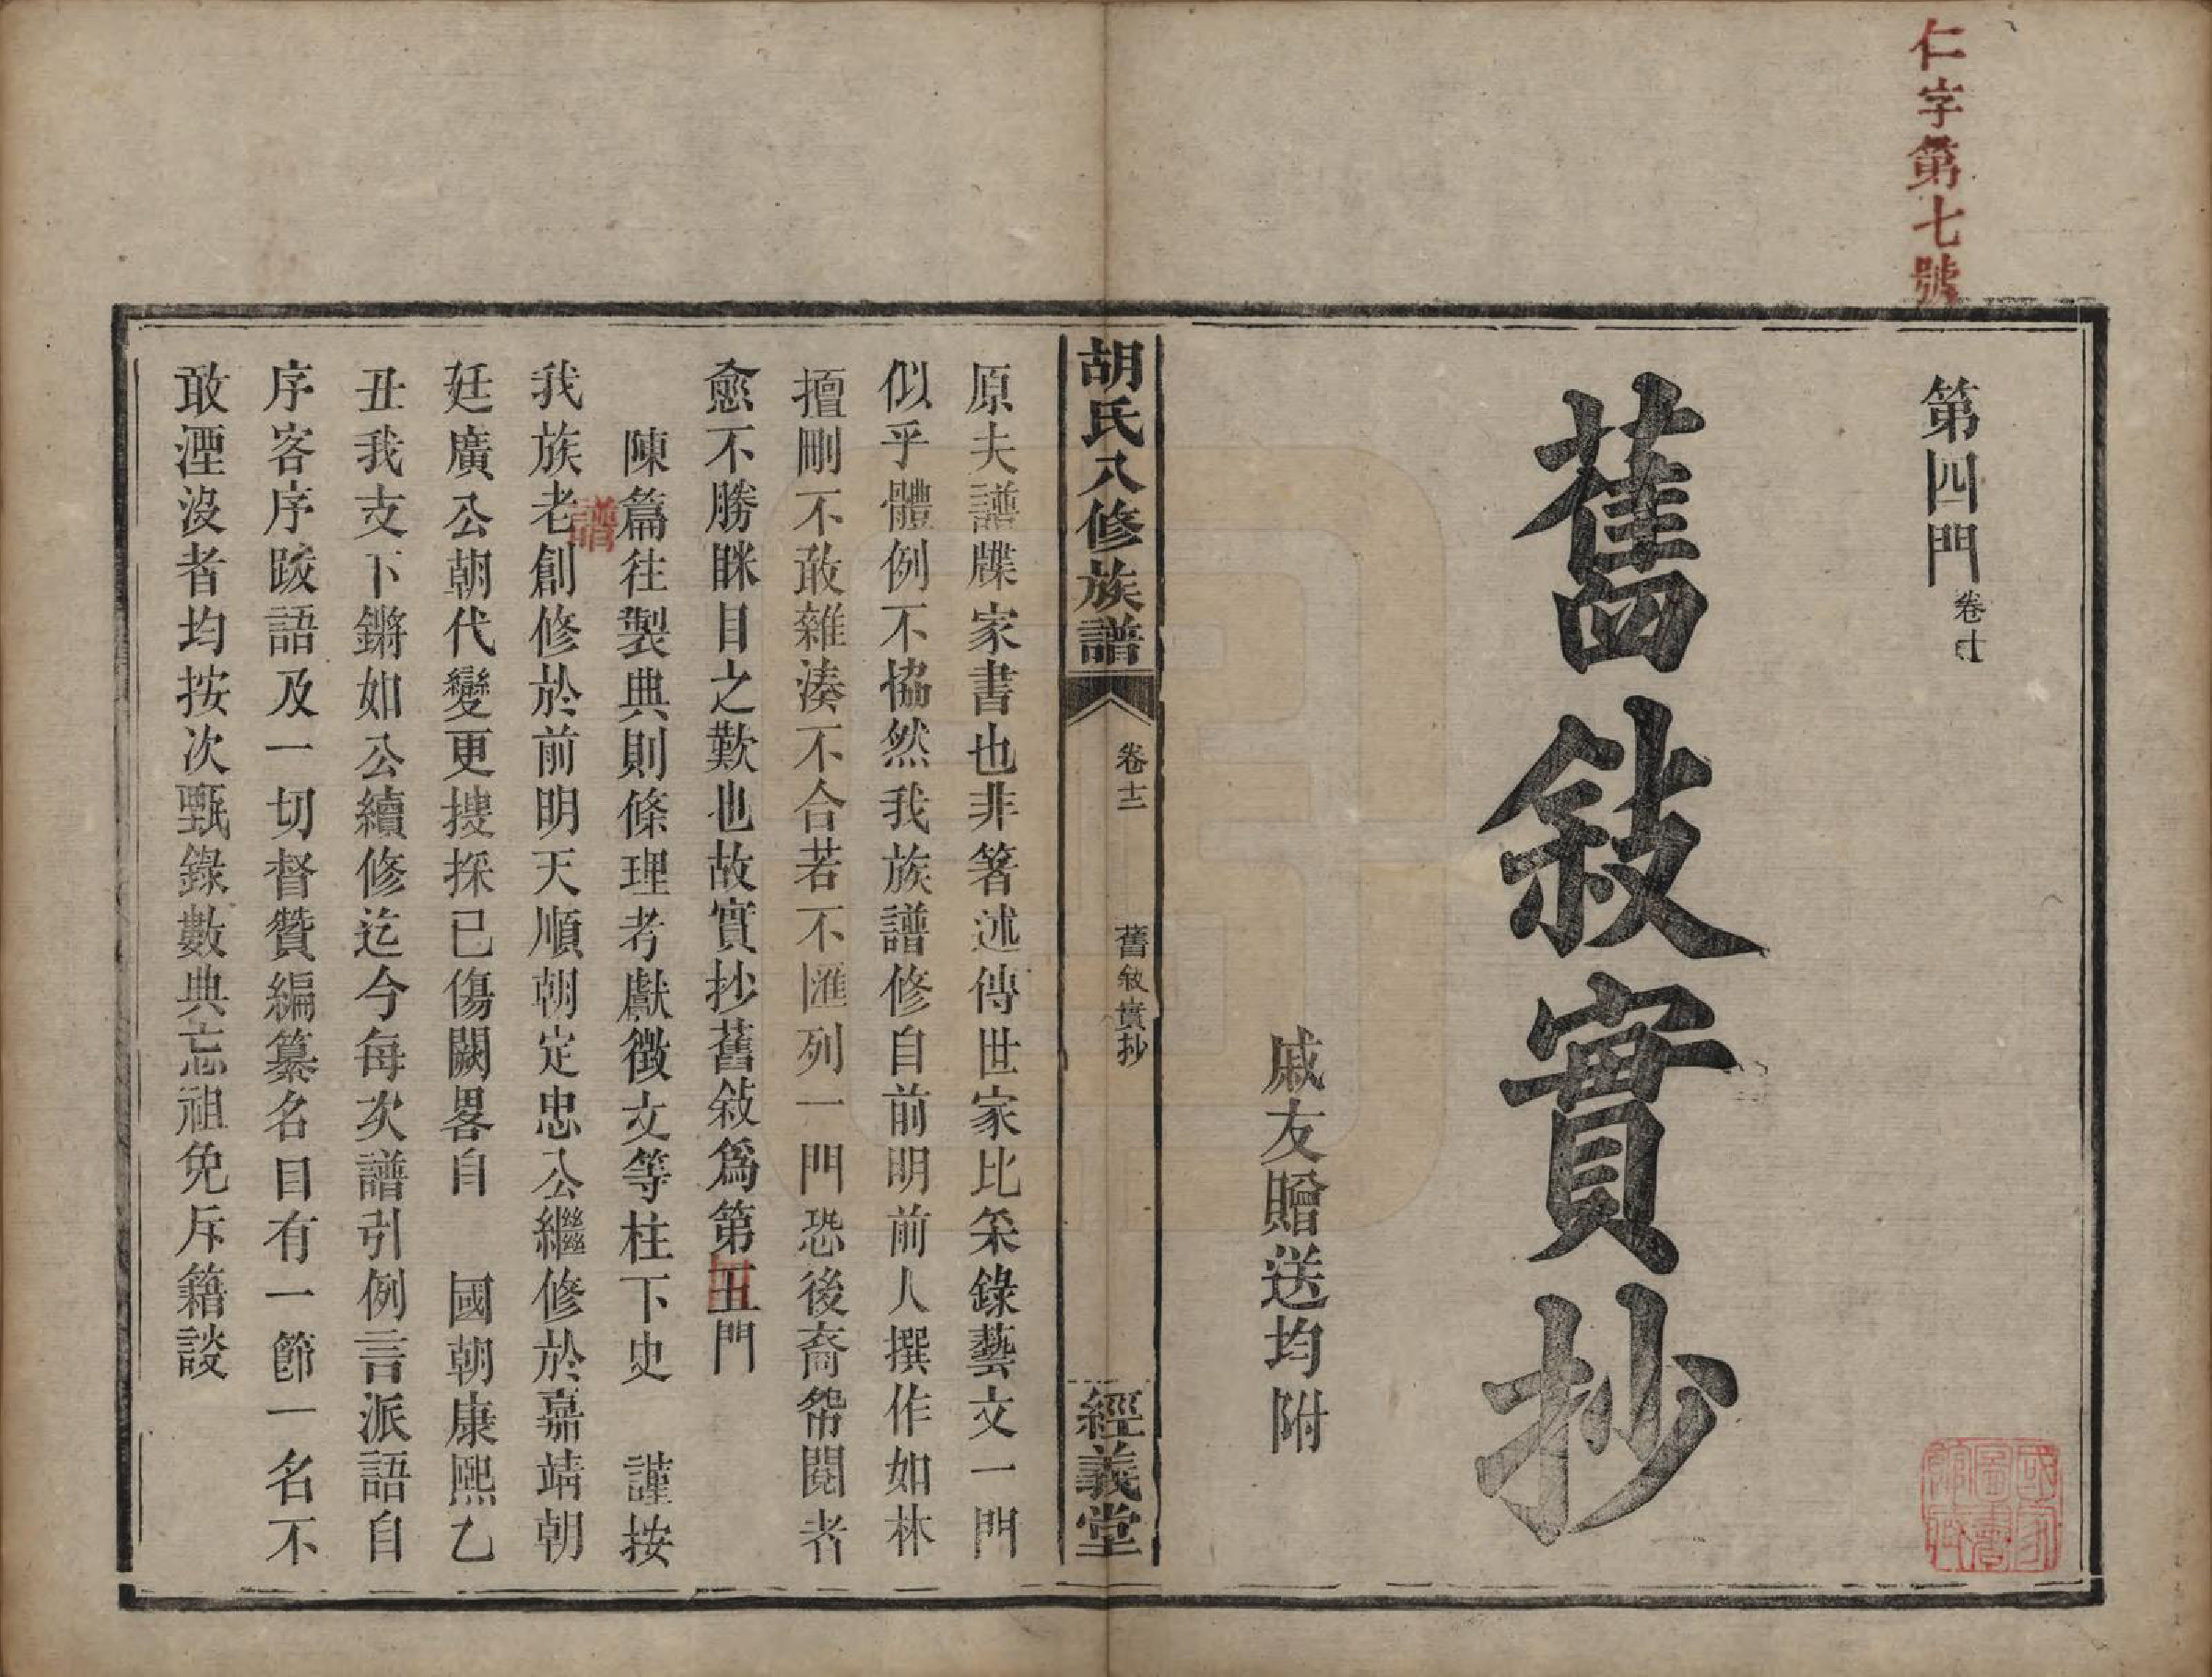 仁字第七號
第四門卷十
舊敘實抄
戚友贈送均附
胡氏八修族譜
卷十二
舊敘實抄
經義堂
原夫譜牒家書也非箸述傳世家比采錄藝文一門
似乎體例不協然我族譜修自前明前人撰作如林
擅刪不敢雜湊不合若不匯列一門恐後裔帑閱者
愈不勝眯目之歎也故實抄舊敍為第五門
陳篇往製典則條理考獻徵文等柱下史 謹按
譜
我族老創修於前明天順朝定忠公繼修於嘉靖朝
廷廣公朝代變更搜採已傷闕畧自 國朝康熙乙
丑我支下鏘如公續修迄今每次譜引例言派語自
序客序跋語及一切督贊編纂名目有一節一名不
敢湮沒者均按次甄錄數典忘祖免斥籍談
國家圖書館藏